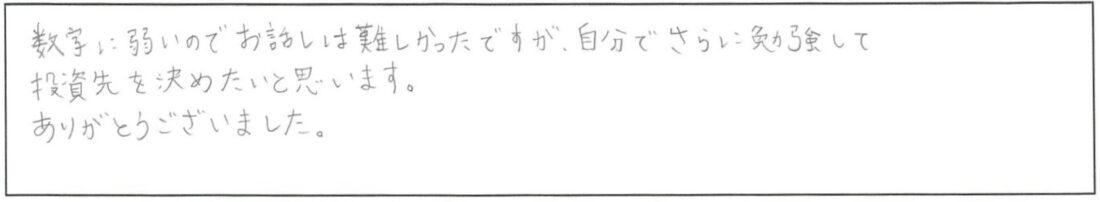 数字に弱いのでお話しは難しかったですが、自分でさらに勉強して
投資先を決めたいと思います。
ありがとうございました。